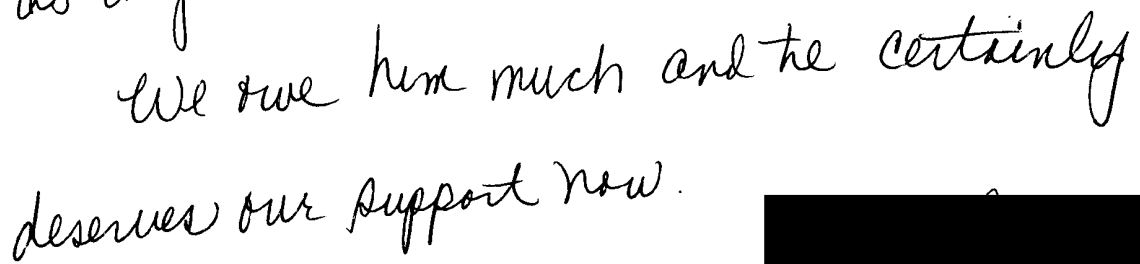 We owe him much and he certainly
deserves our support now.